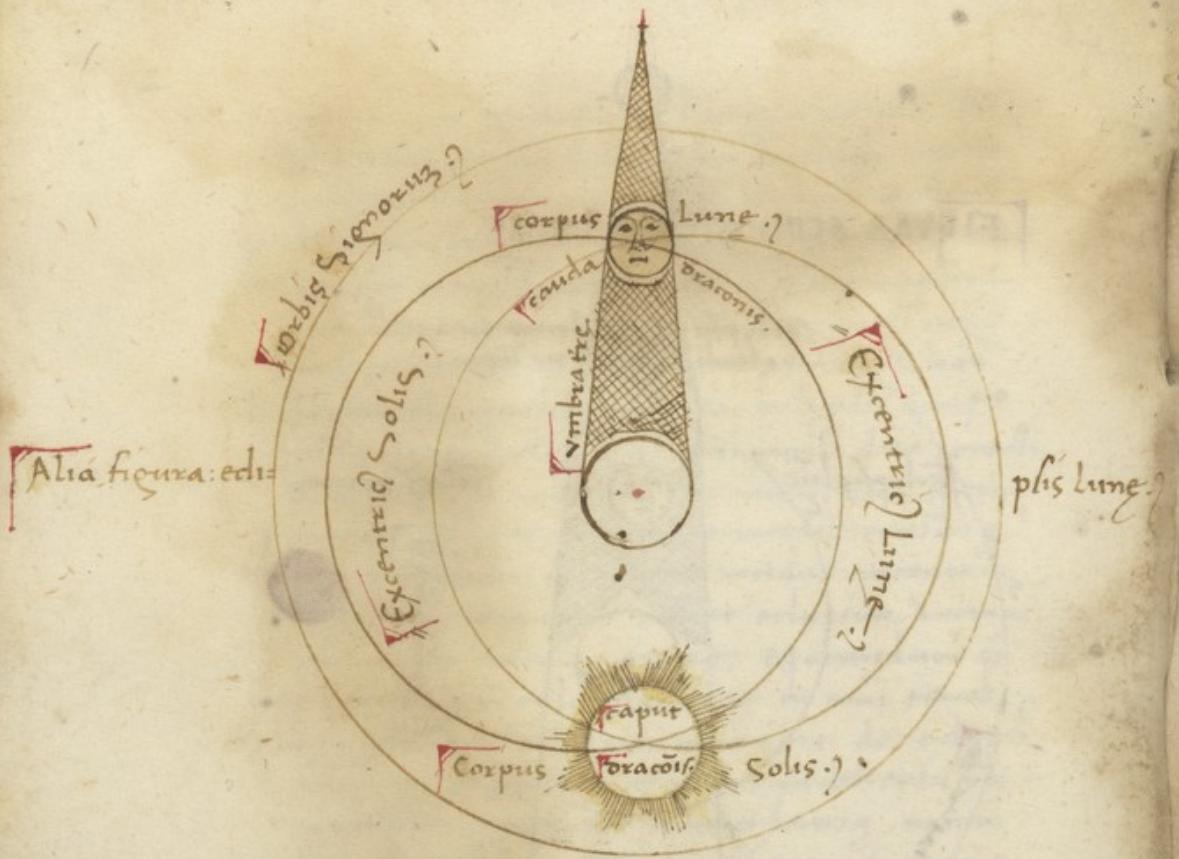 orbis Signoruz.
corpus Lune.
cauda draconis.
vmbra tre.
Excentric9 Solis.
Excentric9 Lune.
Alia figura: ecli=
psis lunę.
caput
dracōis.
Corpus Solis.